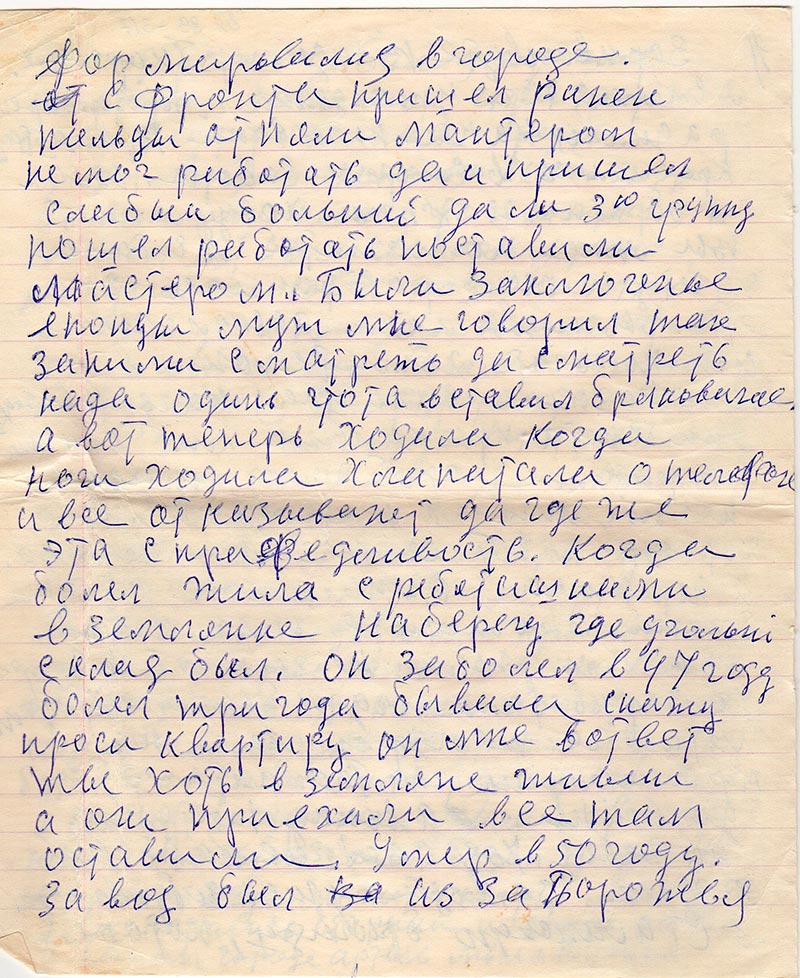 формировались в городе.
от с фронта пришел ранен
пальцы отняли мастером
не мог работать да и пришел
слабый больний дали 3ю группу
пошел работать поставили
мастером. Были заключенье
японцы муж мне говорил так
за ними сматреть да сматреть
нада одинь чтота вставил
а вот теперь ходила когда
ноги ходила хлапатала о телефоне
и все отказывают да где же
эта справедливость. Когда
болел жила с ребятишками
в землянке на берегу где угольні
склад был. он заболел в 47 году
болел три года бывала скажу
проси квартиру он мне в ответ
ты хоть в земляне живеш
а они приехали все там
оставили. Умер в 50 году.
завод был из Запорожья